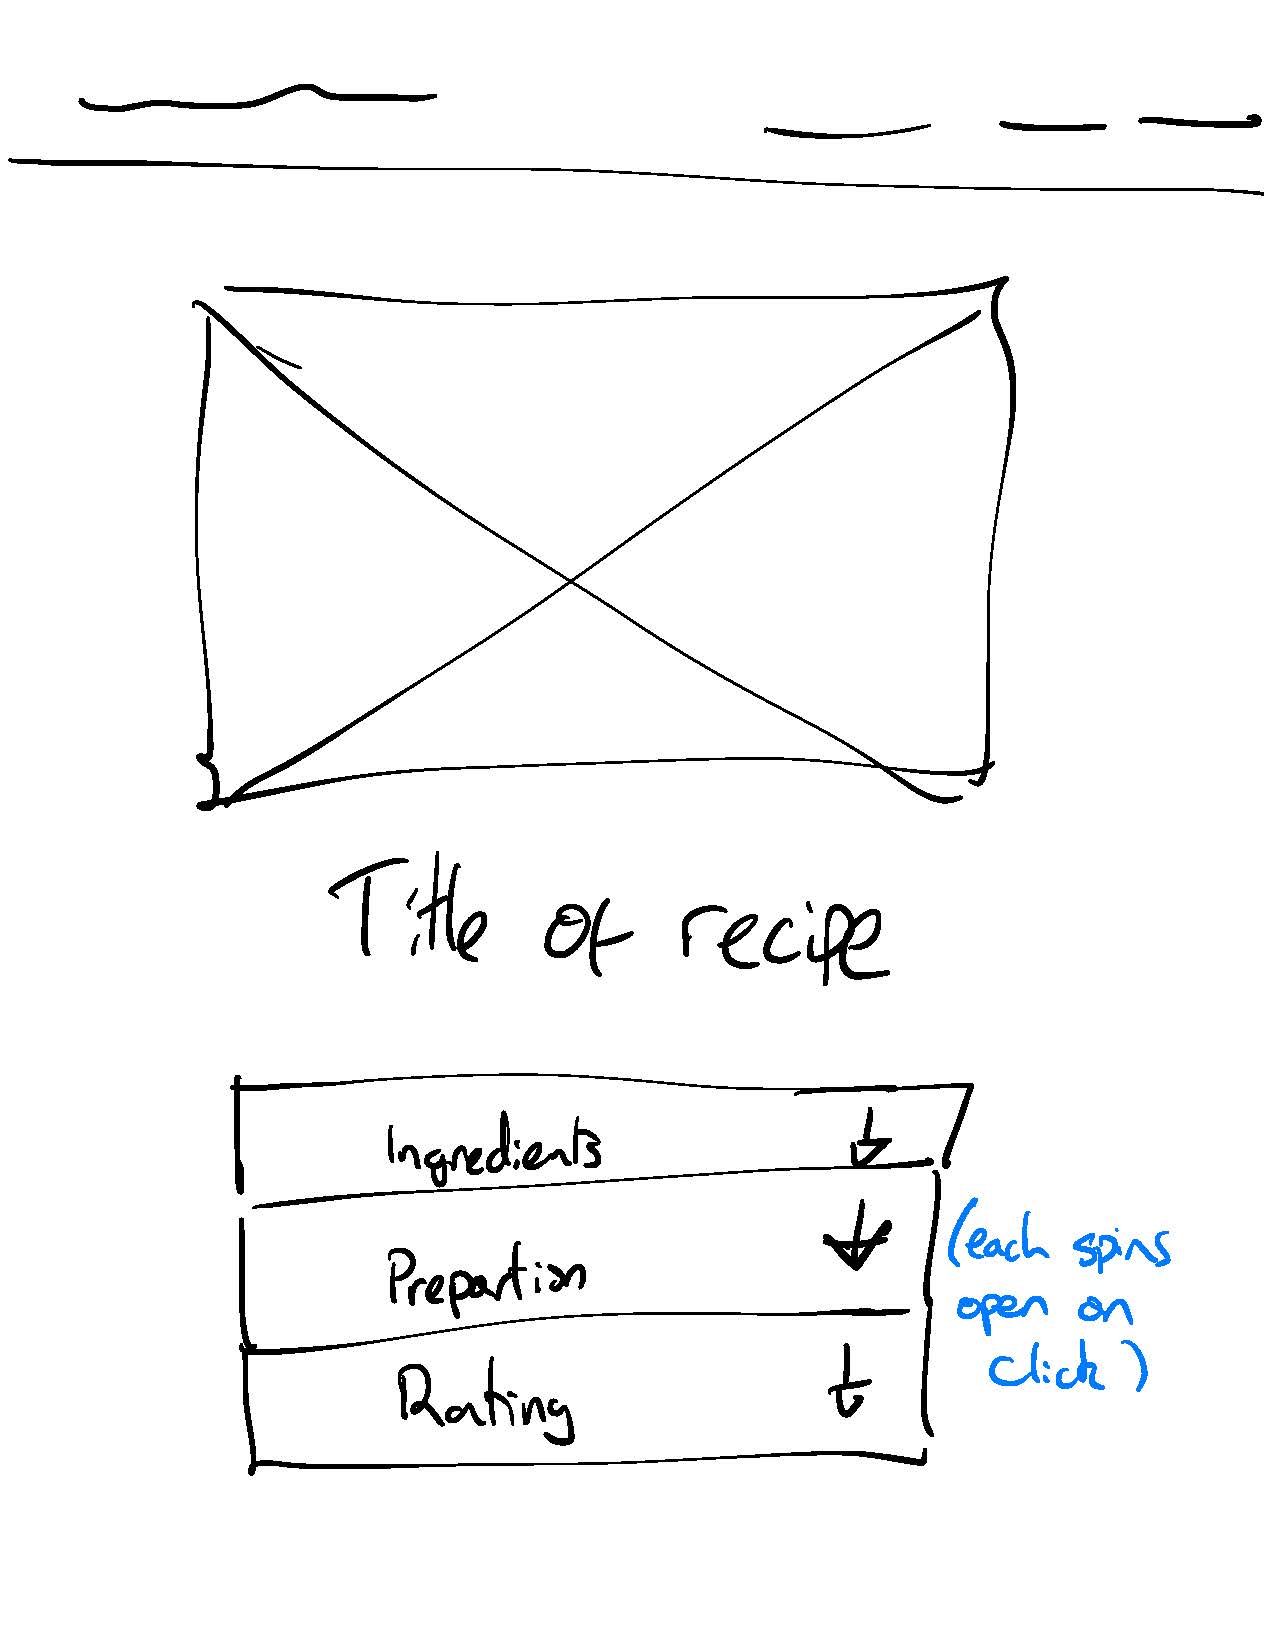 Title of recipe
Ingredients
Prepartion
Rating
(each spins
open on
click)